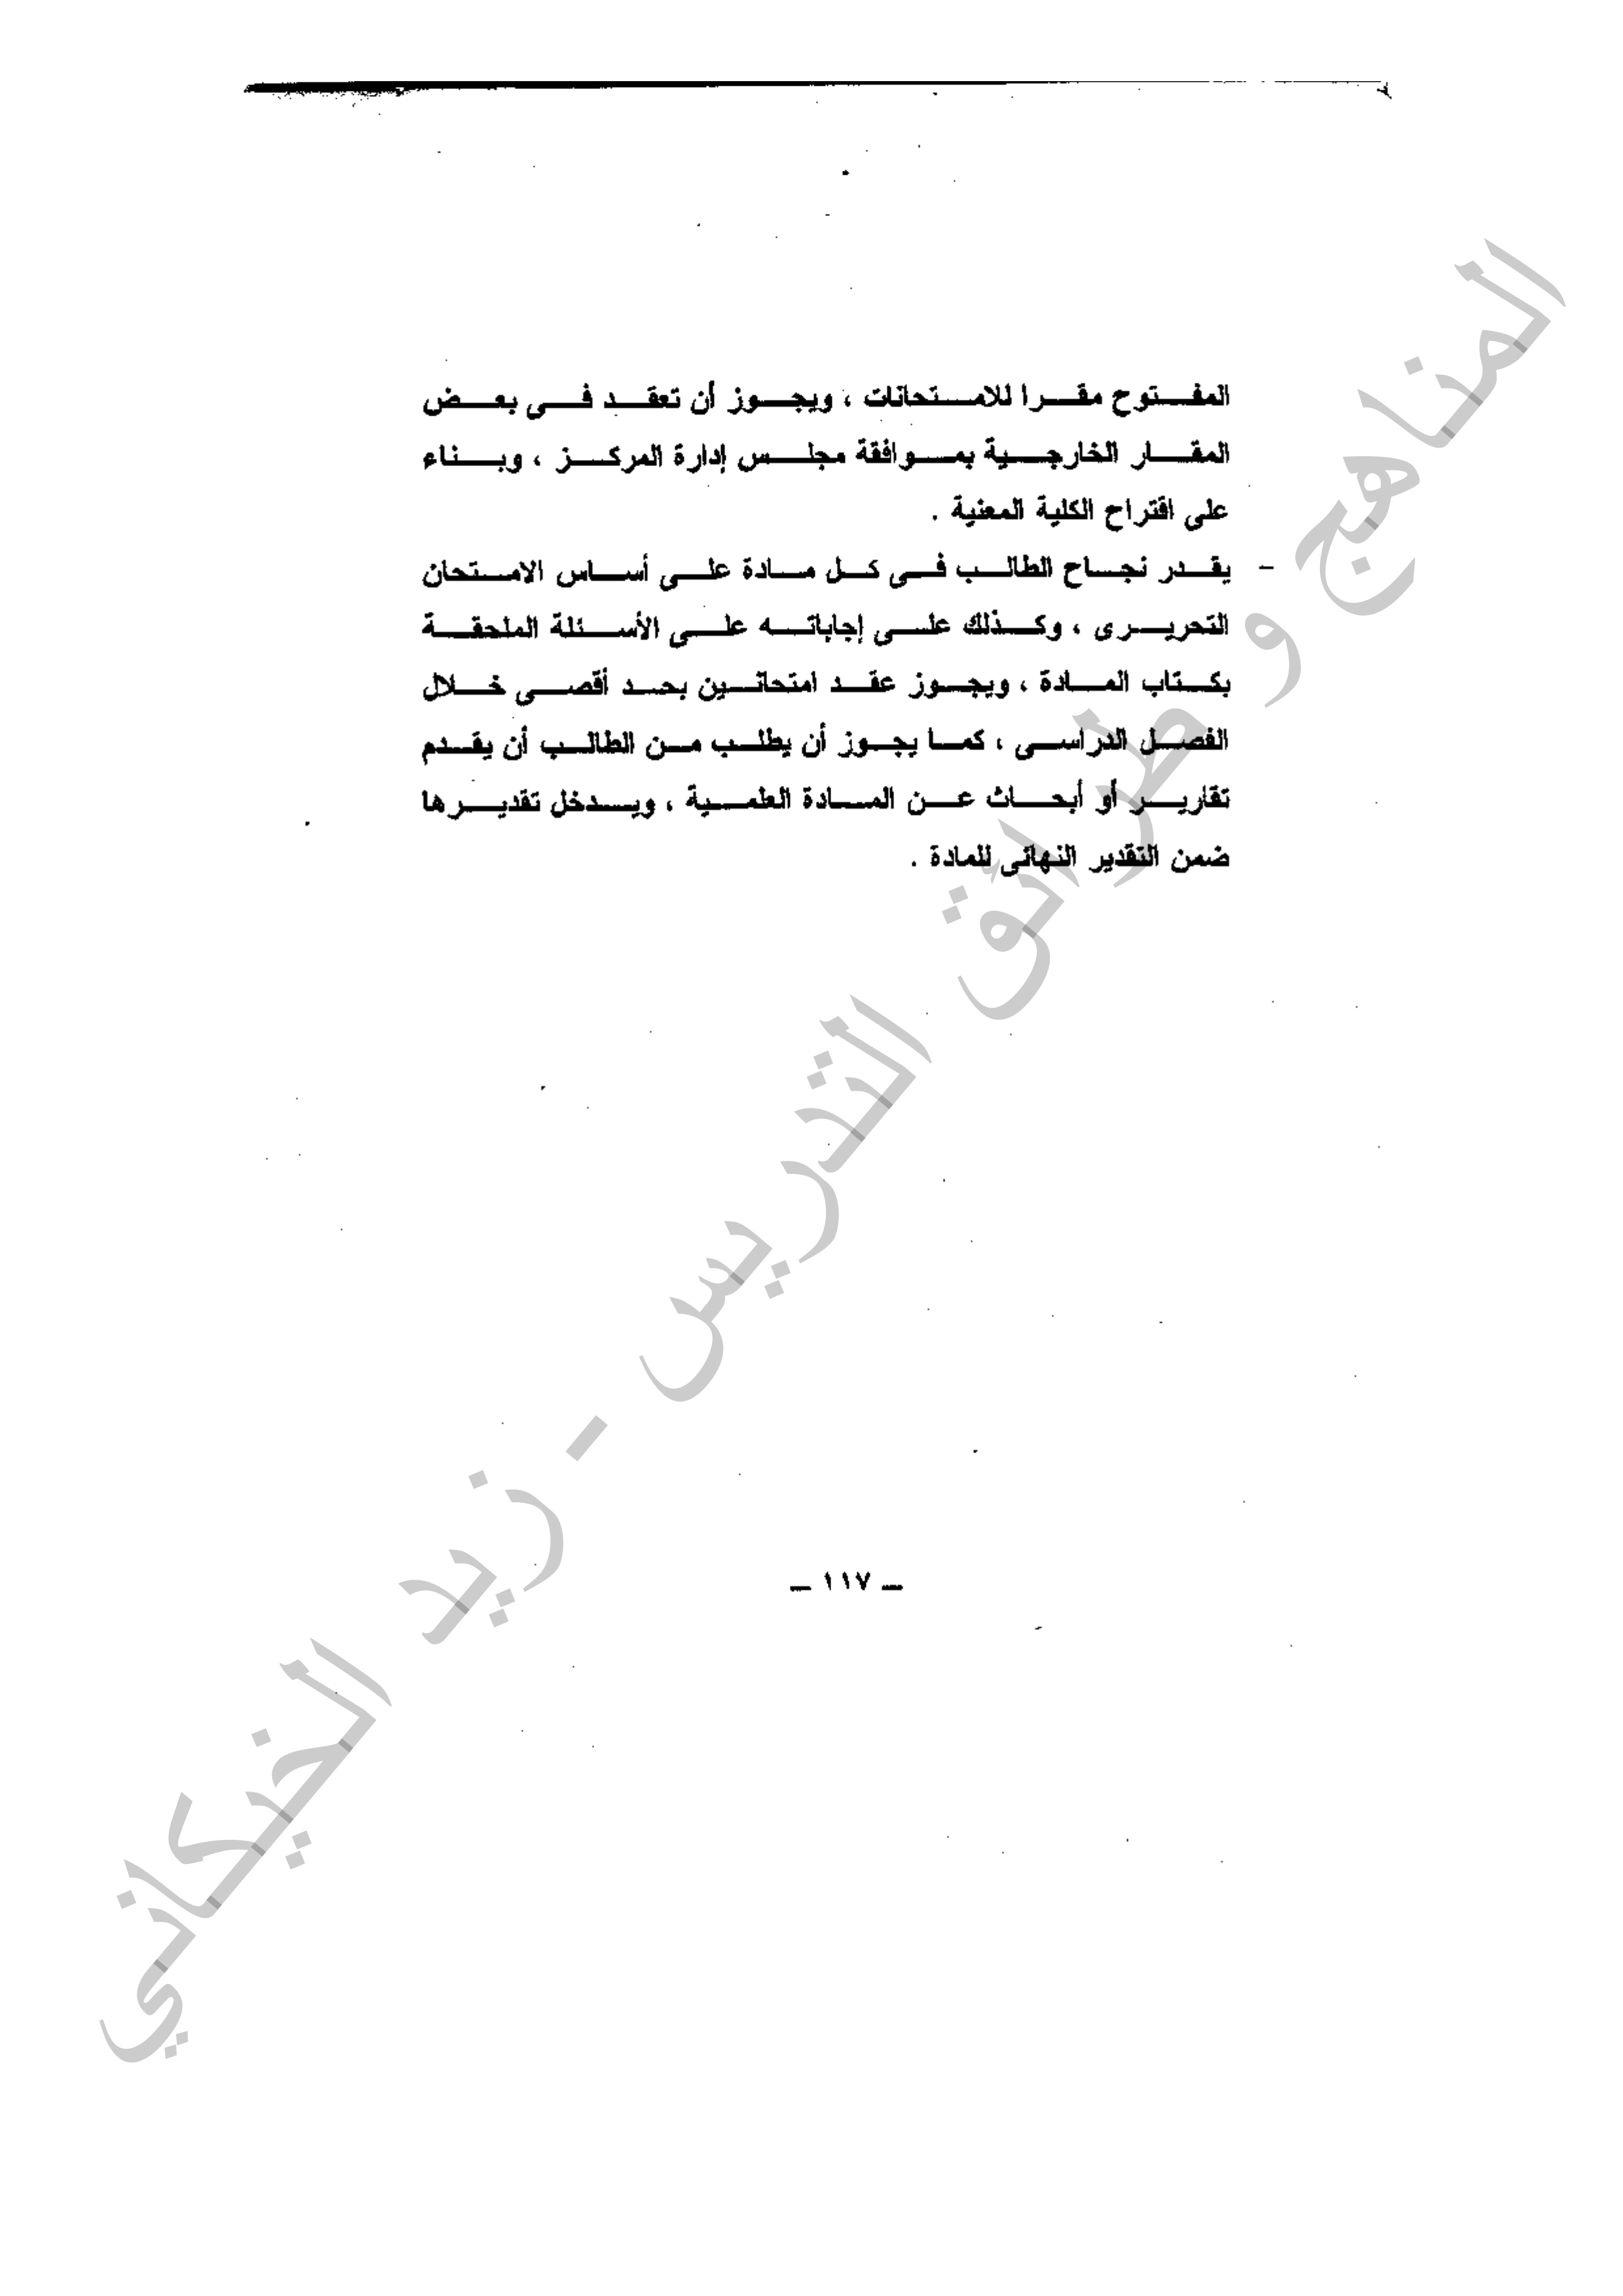 المفتوح مقرا للامتحانات ، ويجوز أن تعقد فى بعض
المقار الخارجية بموافقة مجلس إدارة المركز ، وبناء
على اقتراح الكلية المعنية .
- يقدر نجاح الطالب فى كل مادة على أساس الامتحان
التحريرى ، وكذلك على إجاباته على الأسئلة الملحقة
بكتاب المادة ، ويجوز عقد امتحانين بحد أقصى خلال
الفصل الدراسى ، كما يجوز أن يطلب من الطالب أن يقدم
تقارير أو أبحاث عن المادة العلمية ، ويدخل تقديرها
ضمن التقدير النهائى للمادة .
المناهج و طرائق التدريس - زيد الخيكاني
ــ ١١٧ ــ